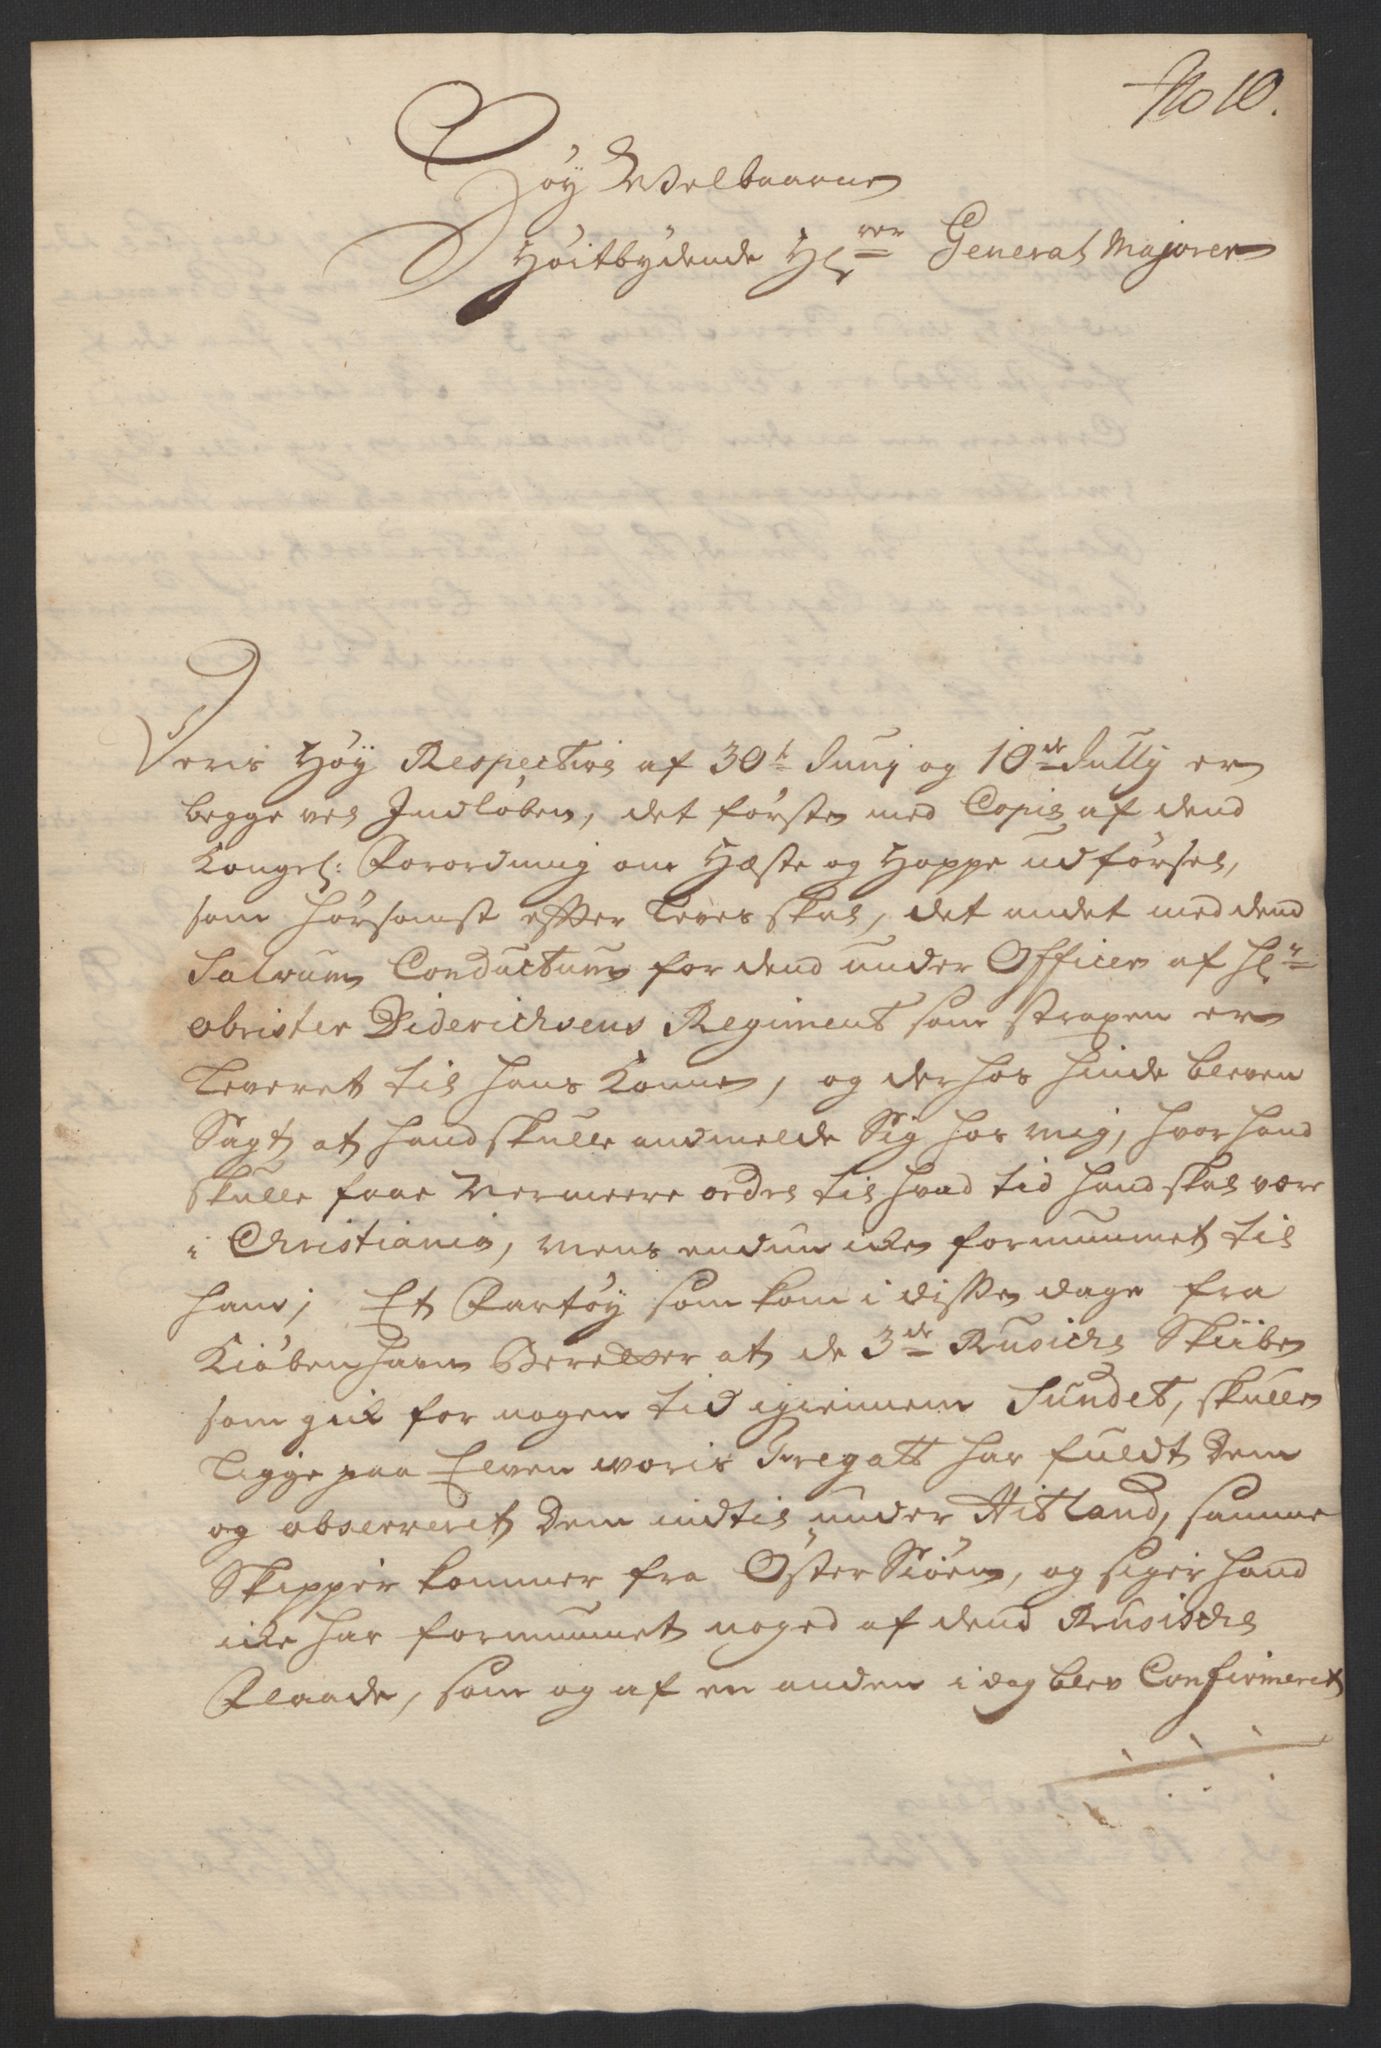 No 10.
Høy Welbaarne
Høitbydende Hr General Majoren
Deris Høy Respective af 30t Junj og 10de Jully er
begge vel Indløben, det første med Copie af dend
Kongel: Forordning om Hæste og Hoppe udførsel,
som hørsomst efter leves skal, det andet med dend
Salvum Conductum for dend under Officer af Hr
obrister Diderichsens Regiment som strapen er
leveret til hans Konne, og der hos hinde bleven
Sagt at hand skulle andmelde Sig hos mig, hvor hand
skulle faae vermeere ordre til hvad tid hand skal være
i Christiania, mens endnu icke fornummet til
ham; Et Fartøy som kom i disse dage fra
Kiøbenhavn Beretter at de 3de Rusiche Skiibe
som gik for nogen tid igiennem Sundet, skulle
ligge paa Elven woris Fregatt har fuldt dem
og observeret dem indtil under Hitland, samme
Skipper kommer fra Øster Siøen, og siger hand
icke har fornummet noged af dend Rusische
Flaade, som og af en anden i dag blev Confirmeret